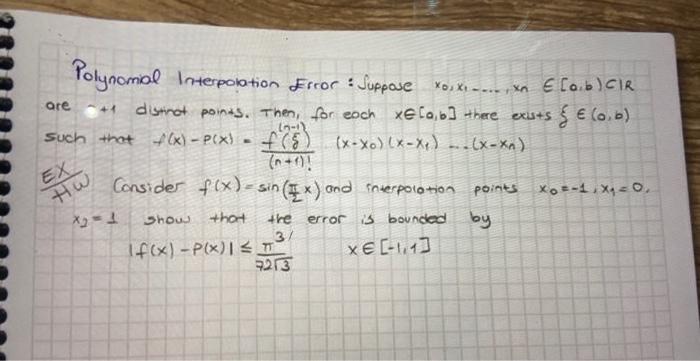 Polynomial Interpolation Error : Suppose x0, x1 ----, xn ∈ [a,b) C IR
are n+1 distinct points. Then, for each x∈[a,b] there exists ξ ∈ (a,b)
such that f(x) - P(x) = f^(n-1)(ξ) / (n+1)! (x-x0)(x-x1) ... (x-xn)
EX/HW Consider f(x) = sin(π/2 x) and interpolation points x0=-1, x1=0,
x2=1 show that the error is bounded by
|f(x) - P(x)| ≤ π^3 / 72√3 x∈[-1,1]